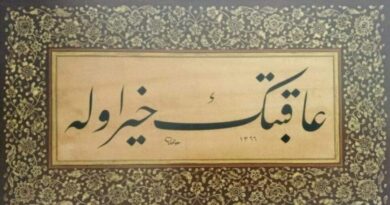 عاقبتك خير اوله
١٣٦٦